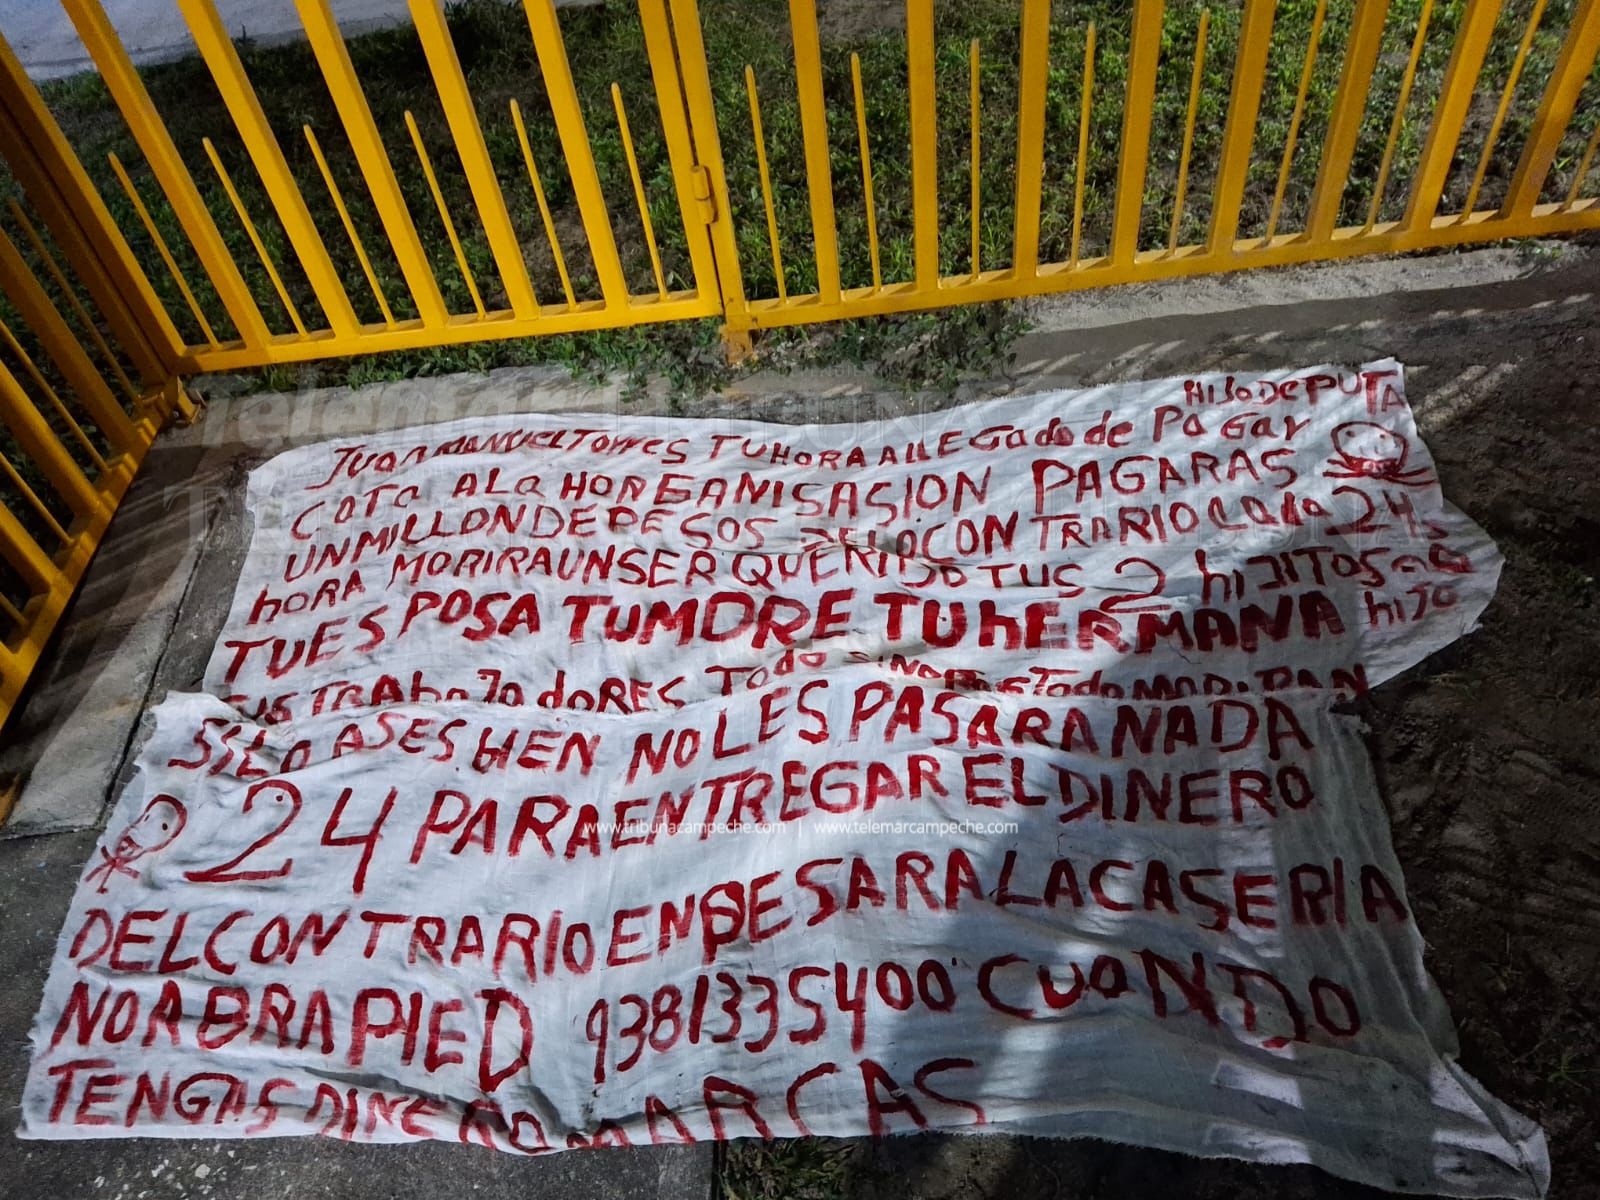 HIJO DE PUTA
Juan MANUEL TORRES TU HORA A LLEGado de PaGar
COTa A La HORGANISASION PAGARAS
UN MILLON DE PESOS DE LO CONTRARIO Cada 24 Hs
hORA MORIRA UN SER QUERIDO TUS 2 hIJITOS
TU ESPOSA TU MDRE TU hERMANA hIJO
TUS TRAbaJadORES Todo SINO
SI LO ASES BIEN NO LES PASARA NADA
24 PARA ENTREGAR EL DINERO
DEL CONTRARIO ENPESARA LA CASERIA
NO ABRA PIED 9381335400 CUaNDO
TENGAS DINERO MARCAS
www.tribunacampeche.com | www.telemarcampeche.com